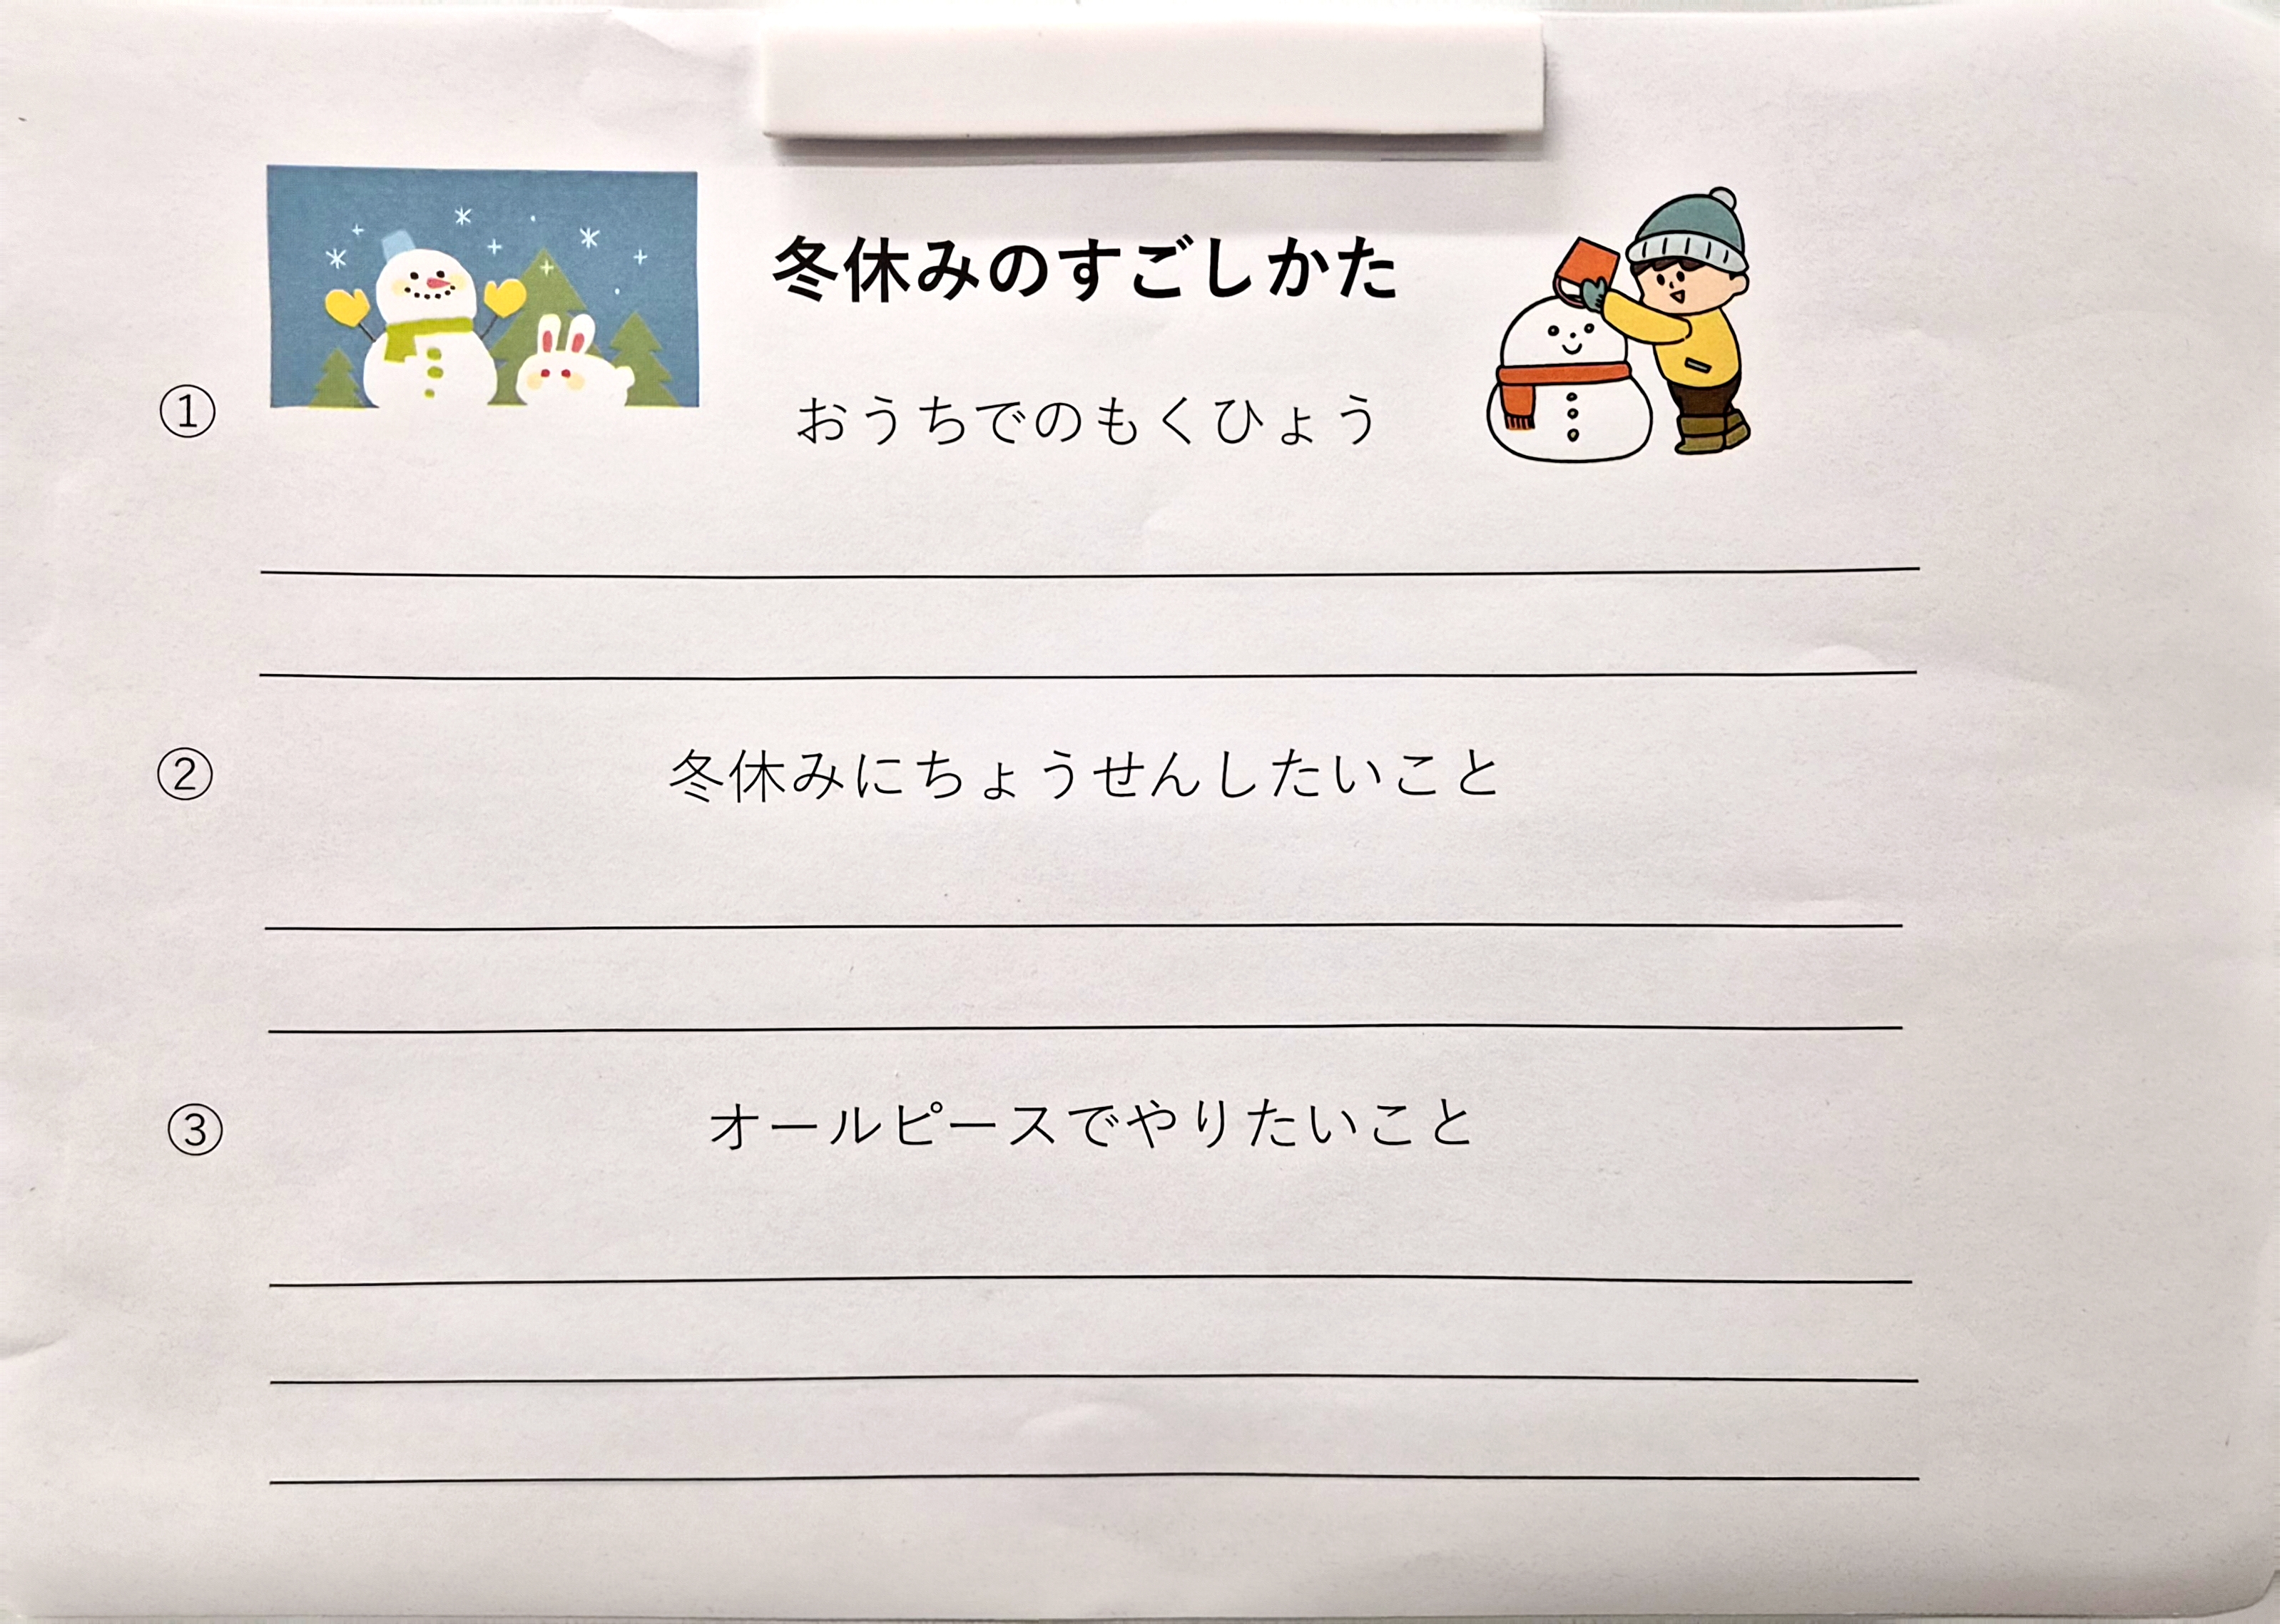 冬休みのすごしかた
① おうちでのもくひょう
② 冬休みにちょうせんしたいこと
③ オールピースでやりたいこと